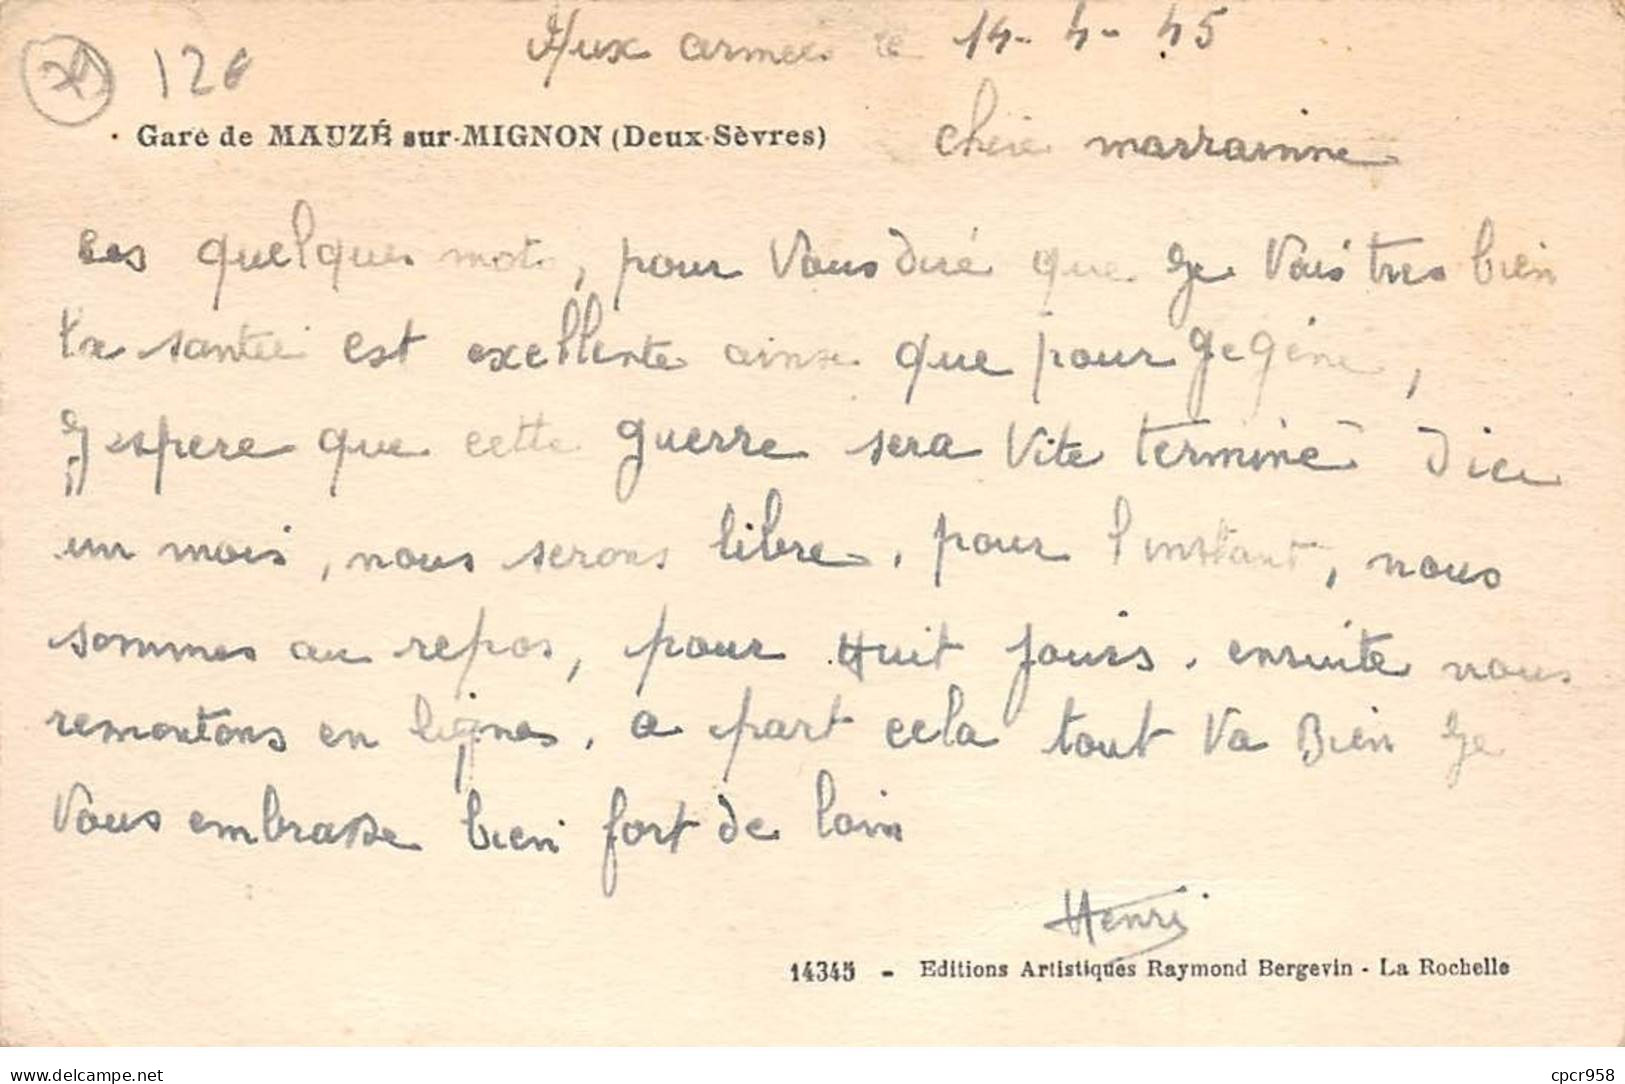 Aux armees le 14-4-45
120
Gare de MAUZÉ sur-MIGNON (Deux-Sèvres)
chére marrainne
ces quelques mots, pour Vous diré que Je Vais tres bien
la santée est exellente ainsi que pour Gegéne,
J'espere que cette guerre sera Vite terminé d'ici
un mois, nous serons libre, pour l'instant, nous
sommes au repos, pour Huit Jours. ensuite nous
remontons en lignes, a part cela tout Va Bien Je
Vous embrasse bien fort de loin
Henri
14345 - Editions Artistiques Raymond Bergevin - La Rochelle
www.delcampe.net
cpcr958